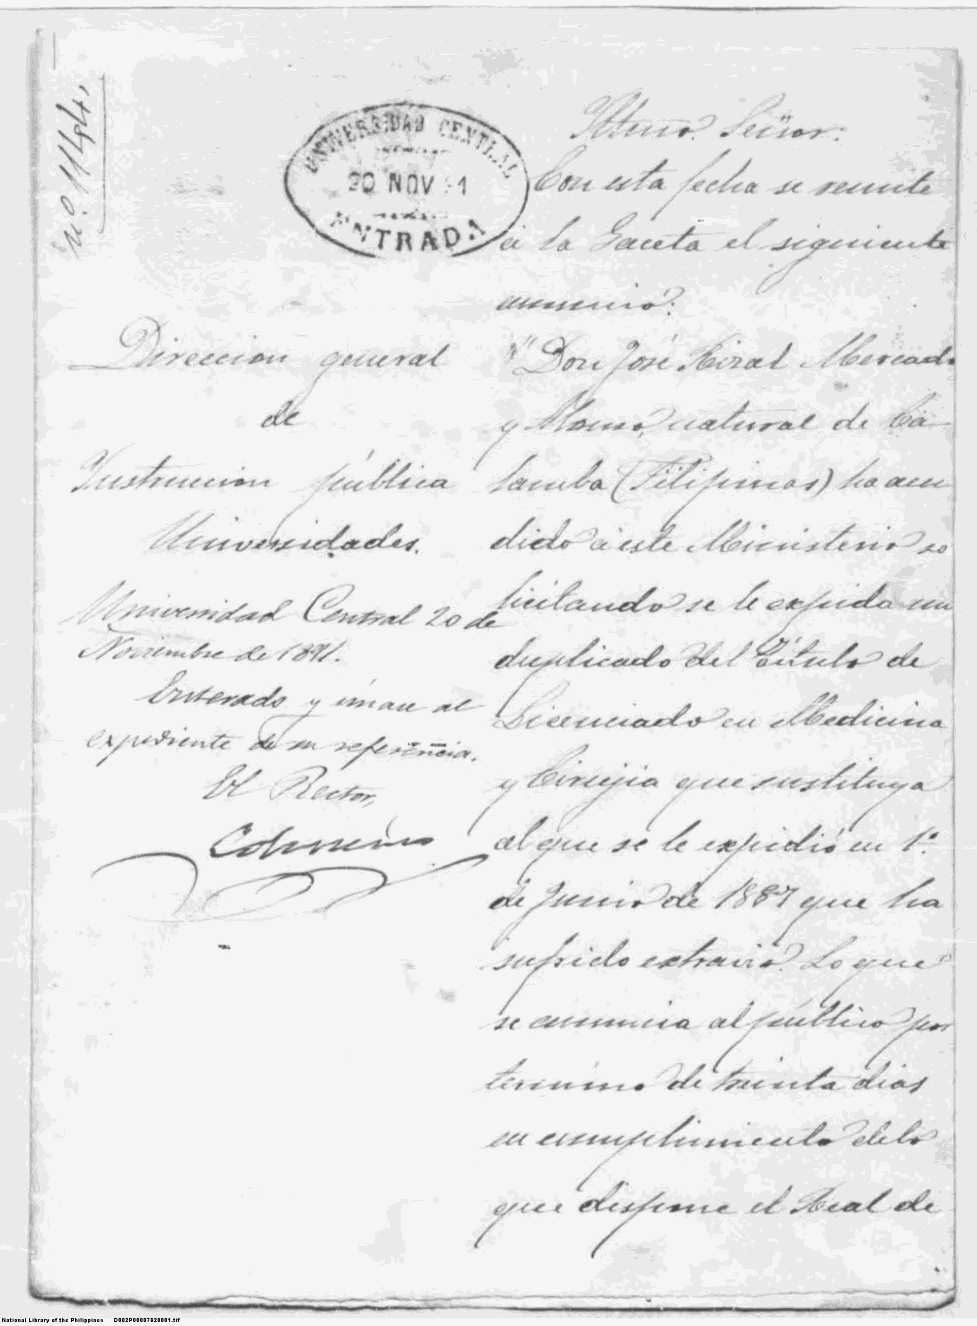 nº 11484,
UNIVERSIDAD CENTRAL
20 NOV 91
ENTRADA
Iltmo. Señor:
Con esta fecha se remite
á la Gaceta el siguiente
anuncio:
"Don José Rizal Mercado
y Alonso, natural de Ca-
lamba (Filipinas) ha acu
dido á este Ministerio so
licitando se le expida un
duplicado del Título de
Licenciado en Medicina
y Cirujia que sustituya
al que se le expidió en 1º.
de Junio de 1887 que ha
sufrido extravio. Lo que
se anuncia al público por
término de treinta dias
en cumplimiento de lo
que dispone el Real de
Direccion general
de
Instruccion pública
Universidades.
Universidad Central 20 de
Noviembre de 1891.
Enterado y únase al
expediente de su referencia.
El Rector,
National Library of the Philippines D002P00007820001.tif